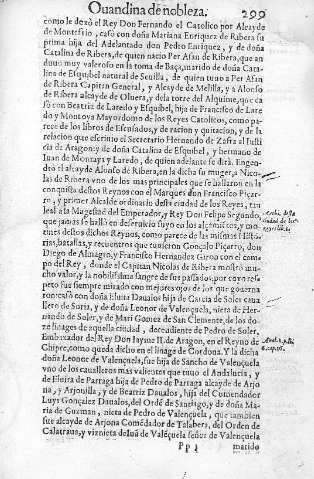 Ouandina de nobleza. 299
como le dexò el Rey Don Fernando el Catolico por Alcayde
de Montefrio, casò con doña Mariana Enriquez de Ribera su
prima hija del Adelantado don Pedro Enriquez, y de doña
Catalina de Ribera, de quien nacio Per Afan de Ribera, que an
duuo muy valeroso en la toma de Baça, marido de doña Cata-
lina de Esquibel natural de Seuilla, de quien tuuo a Per Afan
de Ribera Capitan General, y Alcayde de Melilla, y a Alonso
de Ribera alcayde de Oluera, y dela torre del Alquime, que ca
sò con Beatriz de Laredo y Esquibel, hija de Francisco de Lare
do y Montoya Mayordomo de los Reyes Catolicos, como pa-
rece de los libros de Escusados, y de racion y quitacion, y de la
relacion que escriuio el Secretario Hernando de Zafra
de Aragon; y de doña Catalina de Esquibel, y hermano de
Iuan de Montoya y Laredo, de quien adelante se dirà. Engen-
drò el alcayde Alonso de Ribera, en la dicha su muger, a Nico-
las de Ribera vno de los mas principales que se hallaron en la
conquista destos Reynos con el Marques don Francisco Piçar-
ro, y primer Alcalde ordinario desta ciudad de los Reyes, tan
leal a la Magestad del Emperador, y Rey Don Felipe Segundo,
que jamas se hallò en deseruicio suyo en los
destos dichos Reynos, como parece de las mismas Histo-
rias, batallas, y recuentros que tuuieron Gonçalo Piçarro, don
Diego de Almagro, y Francisco Hernandez Giron con el cam-
po del Rey, donde el Capitan Nicolas de Ribera mostrò mu-
cho valor, y la nobilissima sangre de sus passados, por cuyo res-
peto fue siempre mirado con mejores ojos de los que gouerna
ron: casò con doña Eluira Daualos hija de Garcia de Soler caua
llero de Soria, y de doña Leonor de Valençuela, nieta de Her-
nando de Soler, y de Mari Gomez de San Clemente, de los do-
ze linages de aquella ciudad, decendiente de Pedro de Soler,
Embaxador del Rey Don Iayme II. de Aragon, en el Reyno de
Chipre, como queda dicho en el linage de Cordona. Y la dicha
doña Leonor de Valençuela, fue hija de Sancho de Valençuela
vno de los caualleros mas valientes que tuuo el Andaluzia, y
de Eluira de Parraga hija de Pedro de Parraga alcayde de Arjo
na, y Arjonilla, y de Beatriz Daualos, hija del Comendador
Luys Gonçalez Daualos, del Ordē de Santiago, y de doña Ma-
ria de Guzman, nieta de Pedro de Valençuela, que tambien
fue alcayde de Arjona Comēdador de Talabera, del Orden de
Calatraua, y viznieta de Iuā de Valēçuela señor de Valençuela
Pp 3 marido